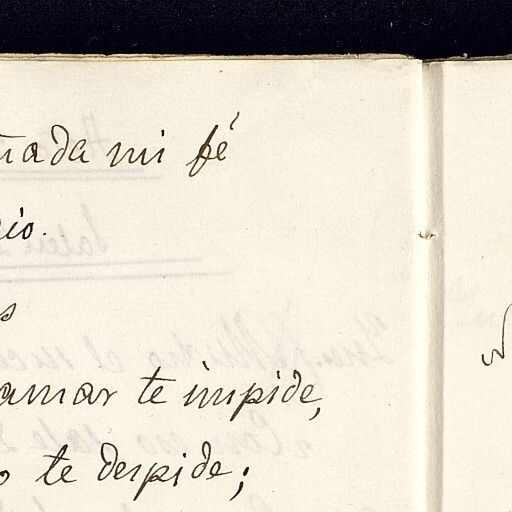 ñada mi fé
io.
s
amar te impide,
o te despide;